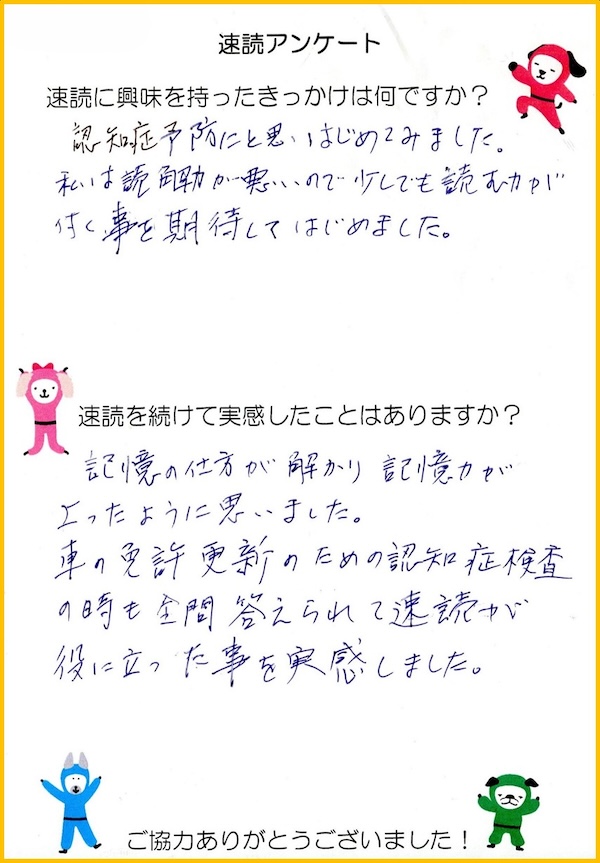 速読アンケート
速読に興味を持ったきっかけは何ですか？
認知症予防にと思いはじめてみました。
私は読解力が悪いので少しでも読む力が
付く事を期待してはじめました。
速読を続けて実感したことはありますか？
記憶の仕方が解かり記憶力が
上ったように思いました。
車の免許更新のための認知症検査
の時も全問答えられて速読が
役に立った事を実感しました。
ご協力ありがとうございました！